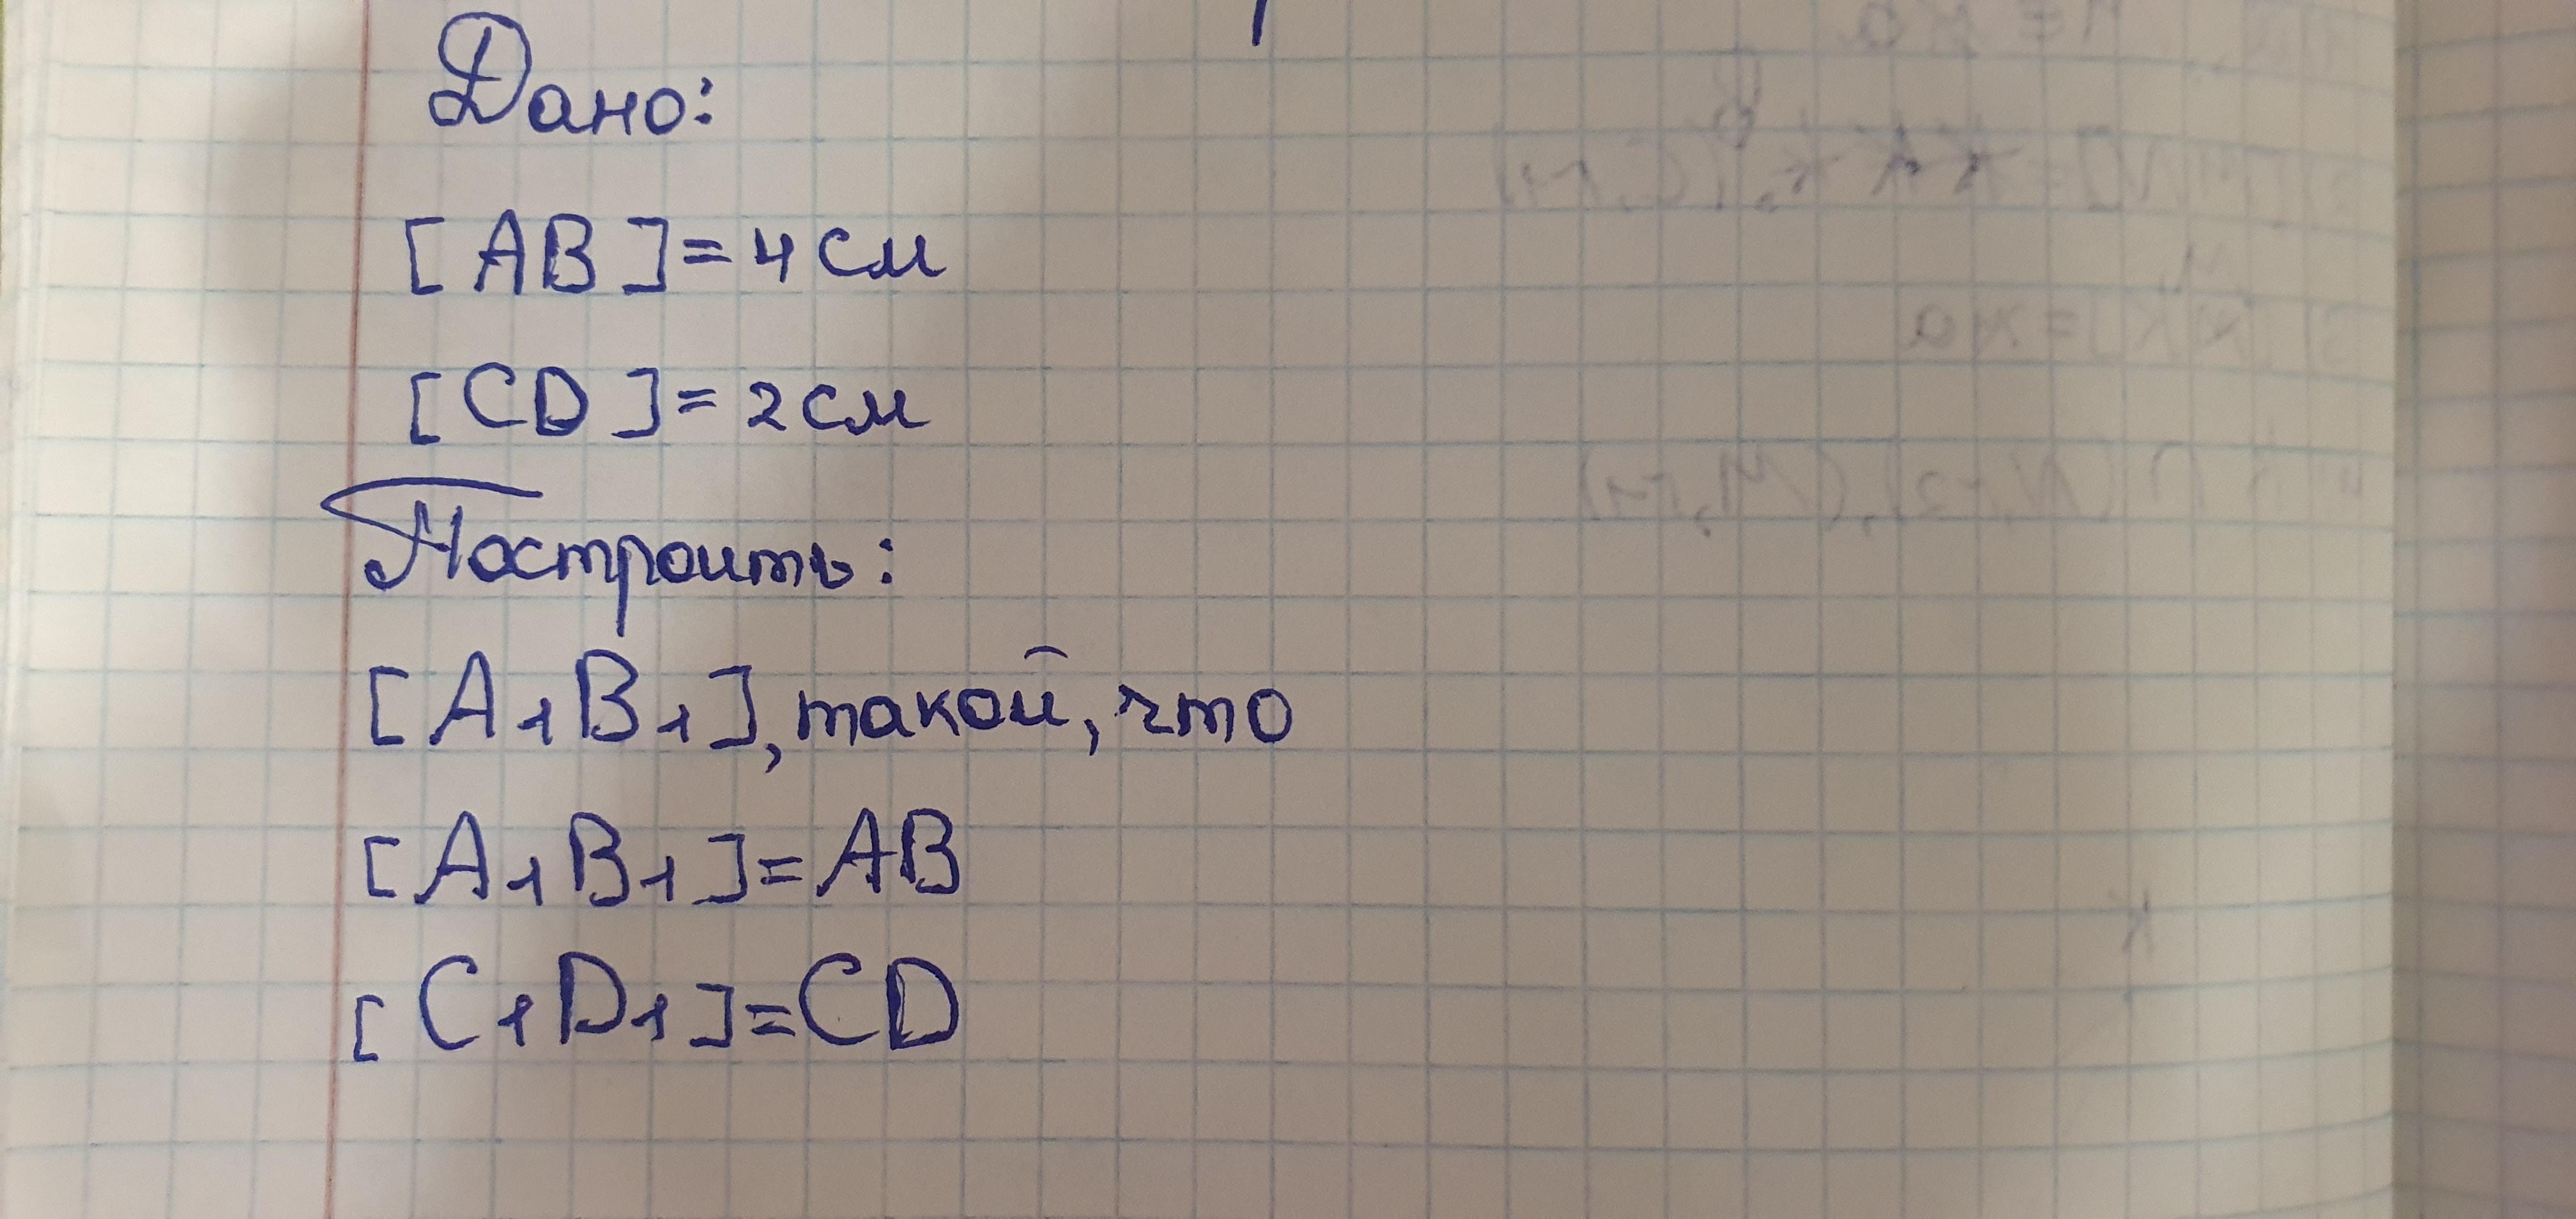 Дано:
[AB]=4 см
[CD]=2 см
Построить:
[A1B1], такой, что
[A1B1]=AB
[C1D1]=CD